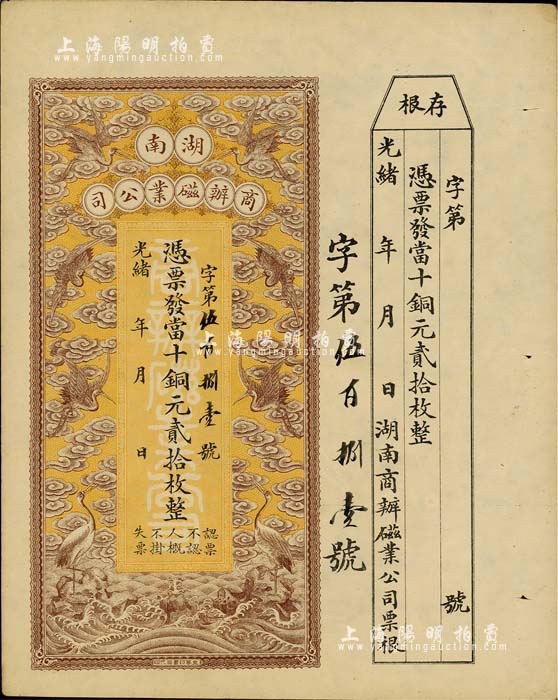 上海陽明拍賣
www.yangmingauction.com
存根
字第 號
憑票發當十銅元貳拾枚整
光緒 年 月 日湖南商辦磁業公司票根
字第伍百捌壹號
湖南
商辦磁業公司
字第伍百捌壹號
憑票發當十銅元貳拾枚整
光緒 年 月 日
認票不認人概不掛失票
上海陽明拍賣
www.yangmingauction.com
上海陽明拍賣
www.yangmingauction.com